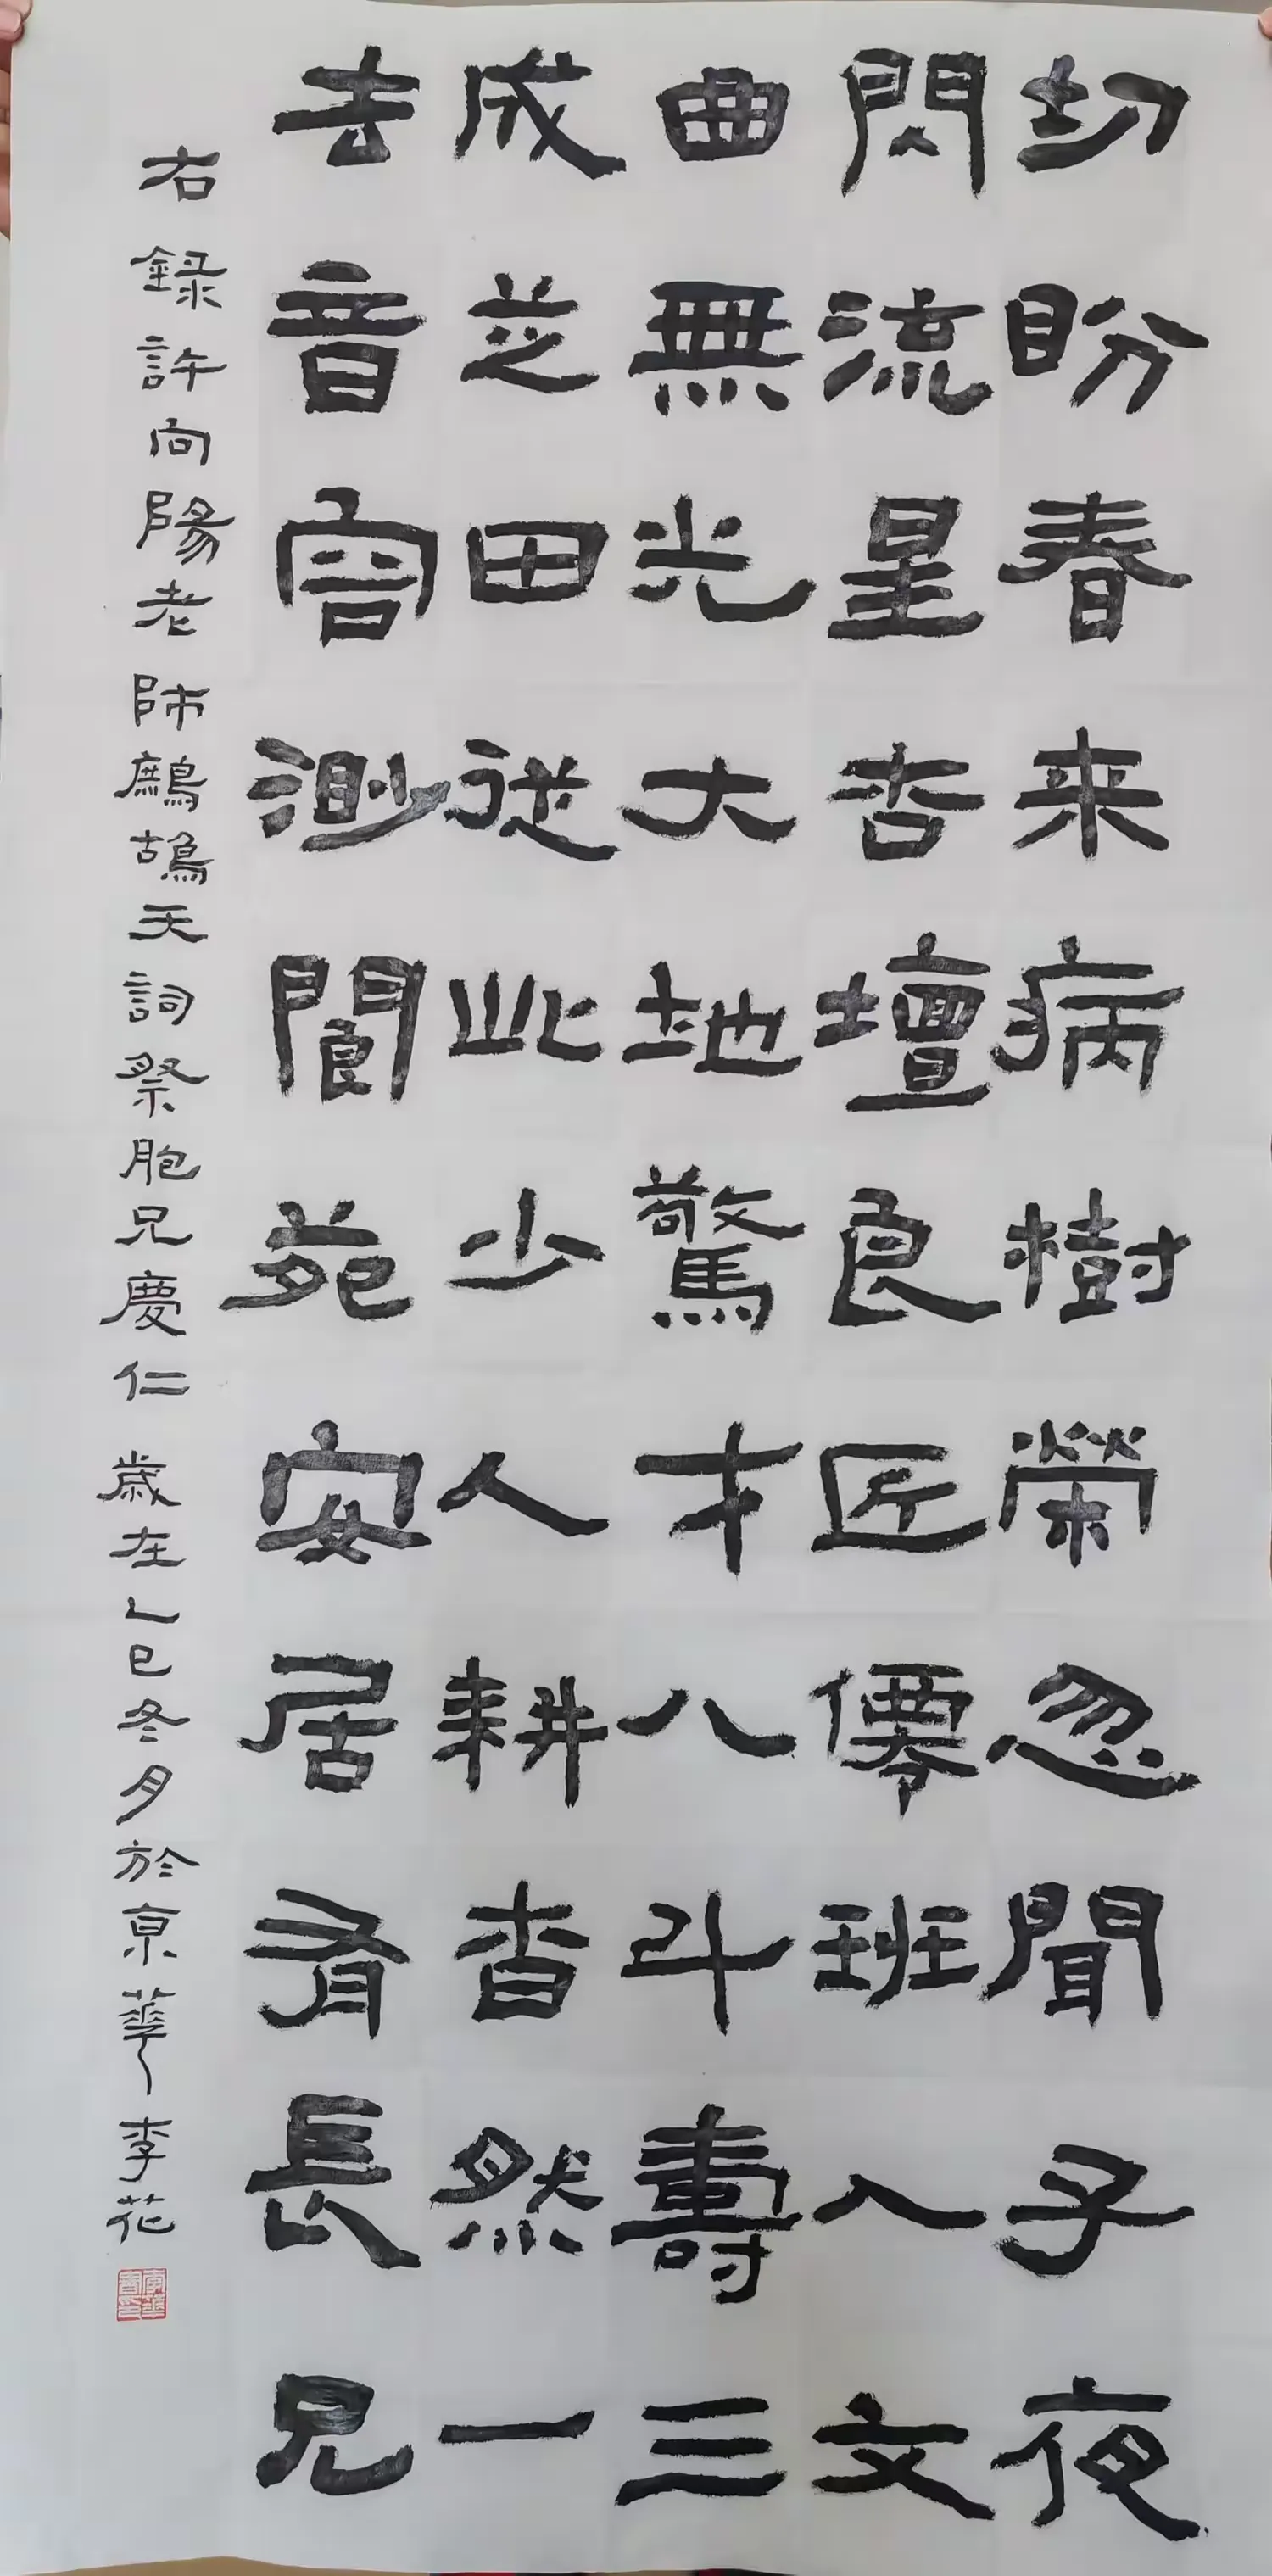 切盼春来病樹榮忽聞子夜
閃流星杏壇良匠僊班入文
曲無光大地驚才八斗壽三
成芝田從此少人耕杳然一
去音容渺閬苑安居有長兄
右錄許向陽老師鷓鴣天詞祭胞兄慶仁 歲在乙巳冬月於京華 李花